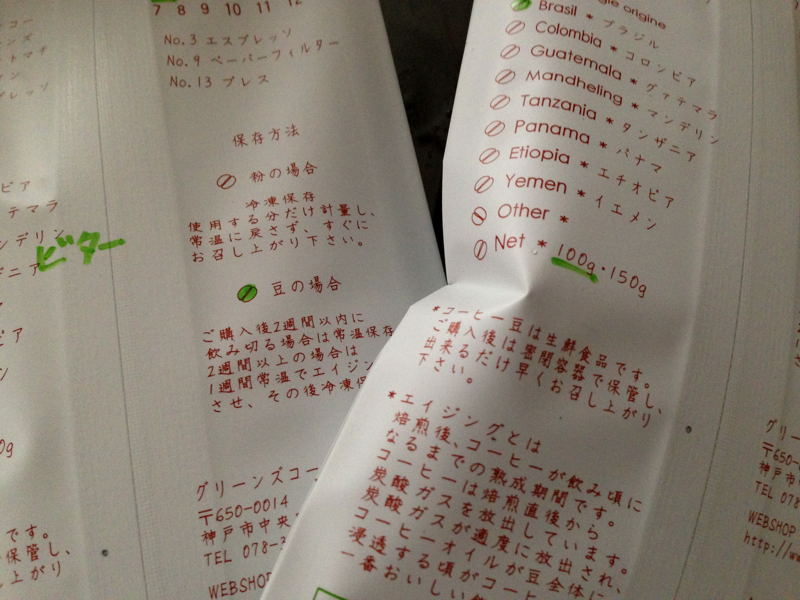 7 8 9 10 11 12
No.3 エスプレッソ
No.9 ペーパーフィルター
No.13 プレス
保存方法
粉の場合
冷凍保存
使用する分だけ計量し、
常温に戻さず、すぐに
お召し上がり下さい。
豆の場合
ご購入後2週間以内に
飲み切る場合は常温保存
2週間以上の場合は
1週間常温でエイジン
させ、その後冷凍保
グリーンズコー
〒650-0014
神戸市中央
TEL 078-3
WEBSHOP
ビター
ピア
テマラ
ンデリン
ニア
です。
保管し、
上がり
origine
Brasil * ブラジル
Colombia * コロンビア
Guatemala * グァテマラ
Mandheling * マンデリン
Tanzania * タンザニア
Panama * パナマ
Etiopia * エチオピア
Yemen * イエメン
Other *
Net * 100g・150g
*コーヒー豆は生鮮食品です。
ご購入後は密閉容器で保管し、
出来るだけ早くお召し上がり
下さい。
*エイジングとは
焙煎後、コーヒーが飲み頃に
なるまでの熟成期間です。
コーヒーは焙煎直後から
炭酸ガスを放出しています。
炭酸ガスが適度に放出され、
コーヒーオイルが豆全体に
浸透する頃がコーヒ
一番おいしい
グリー
〒650-
神戸市
TEL 078
WEBSHOP
http://w